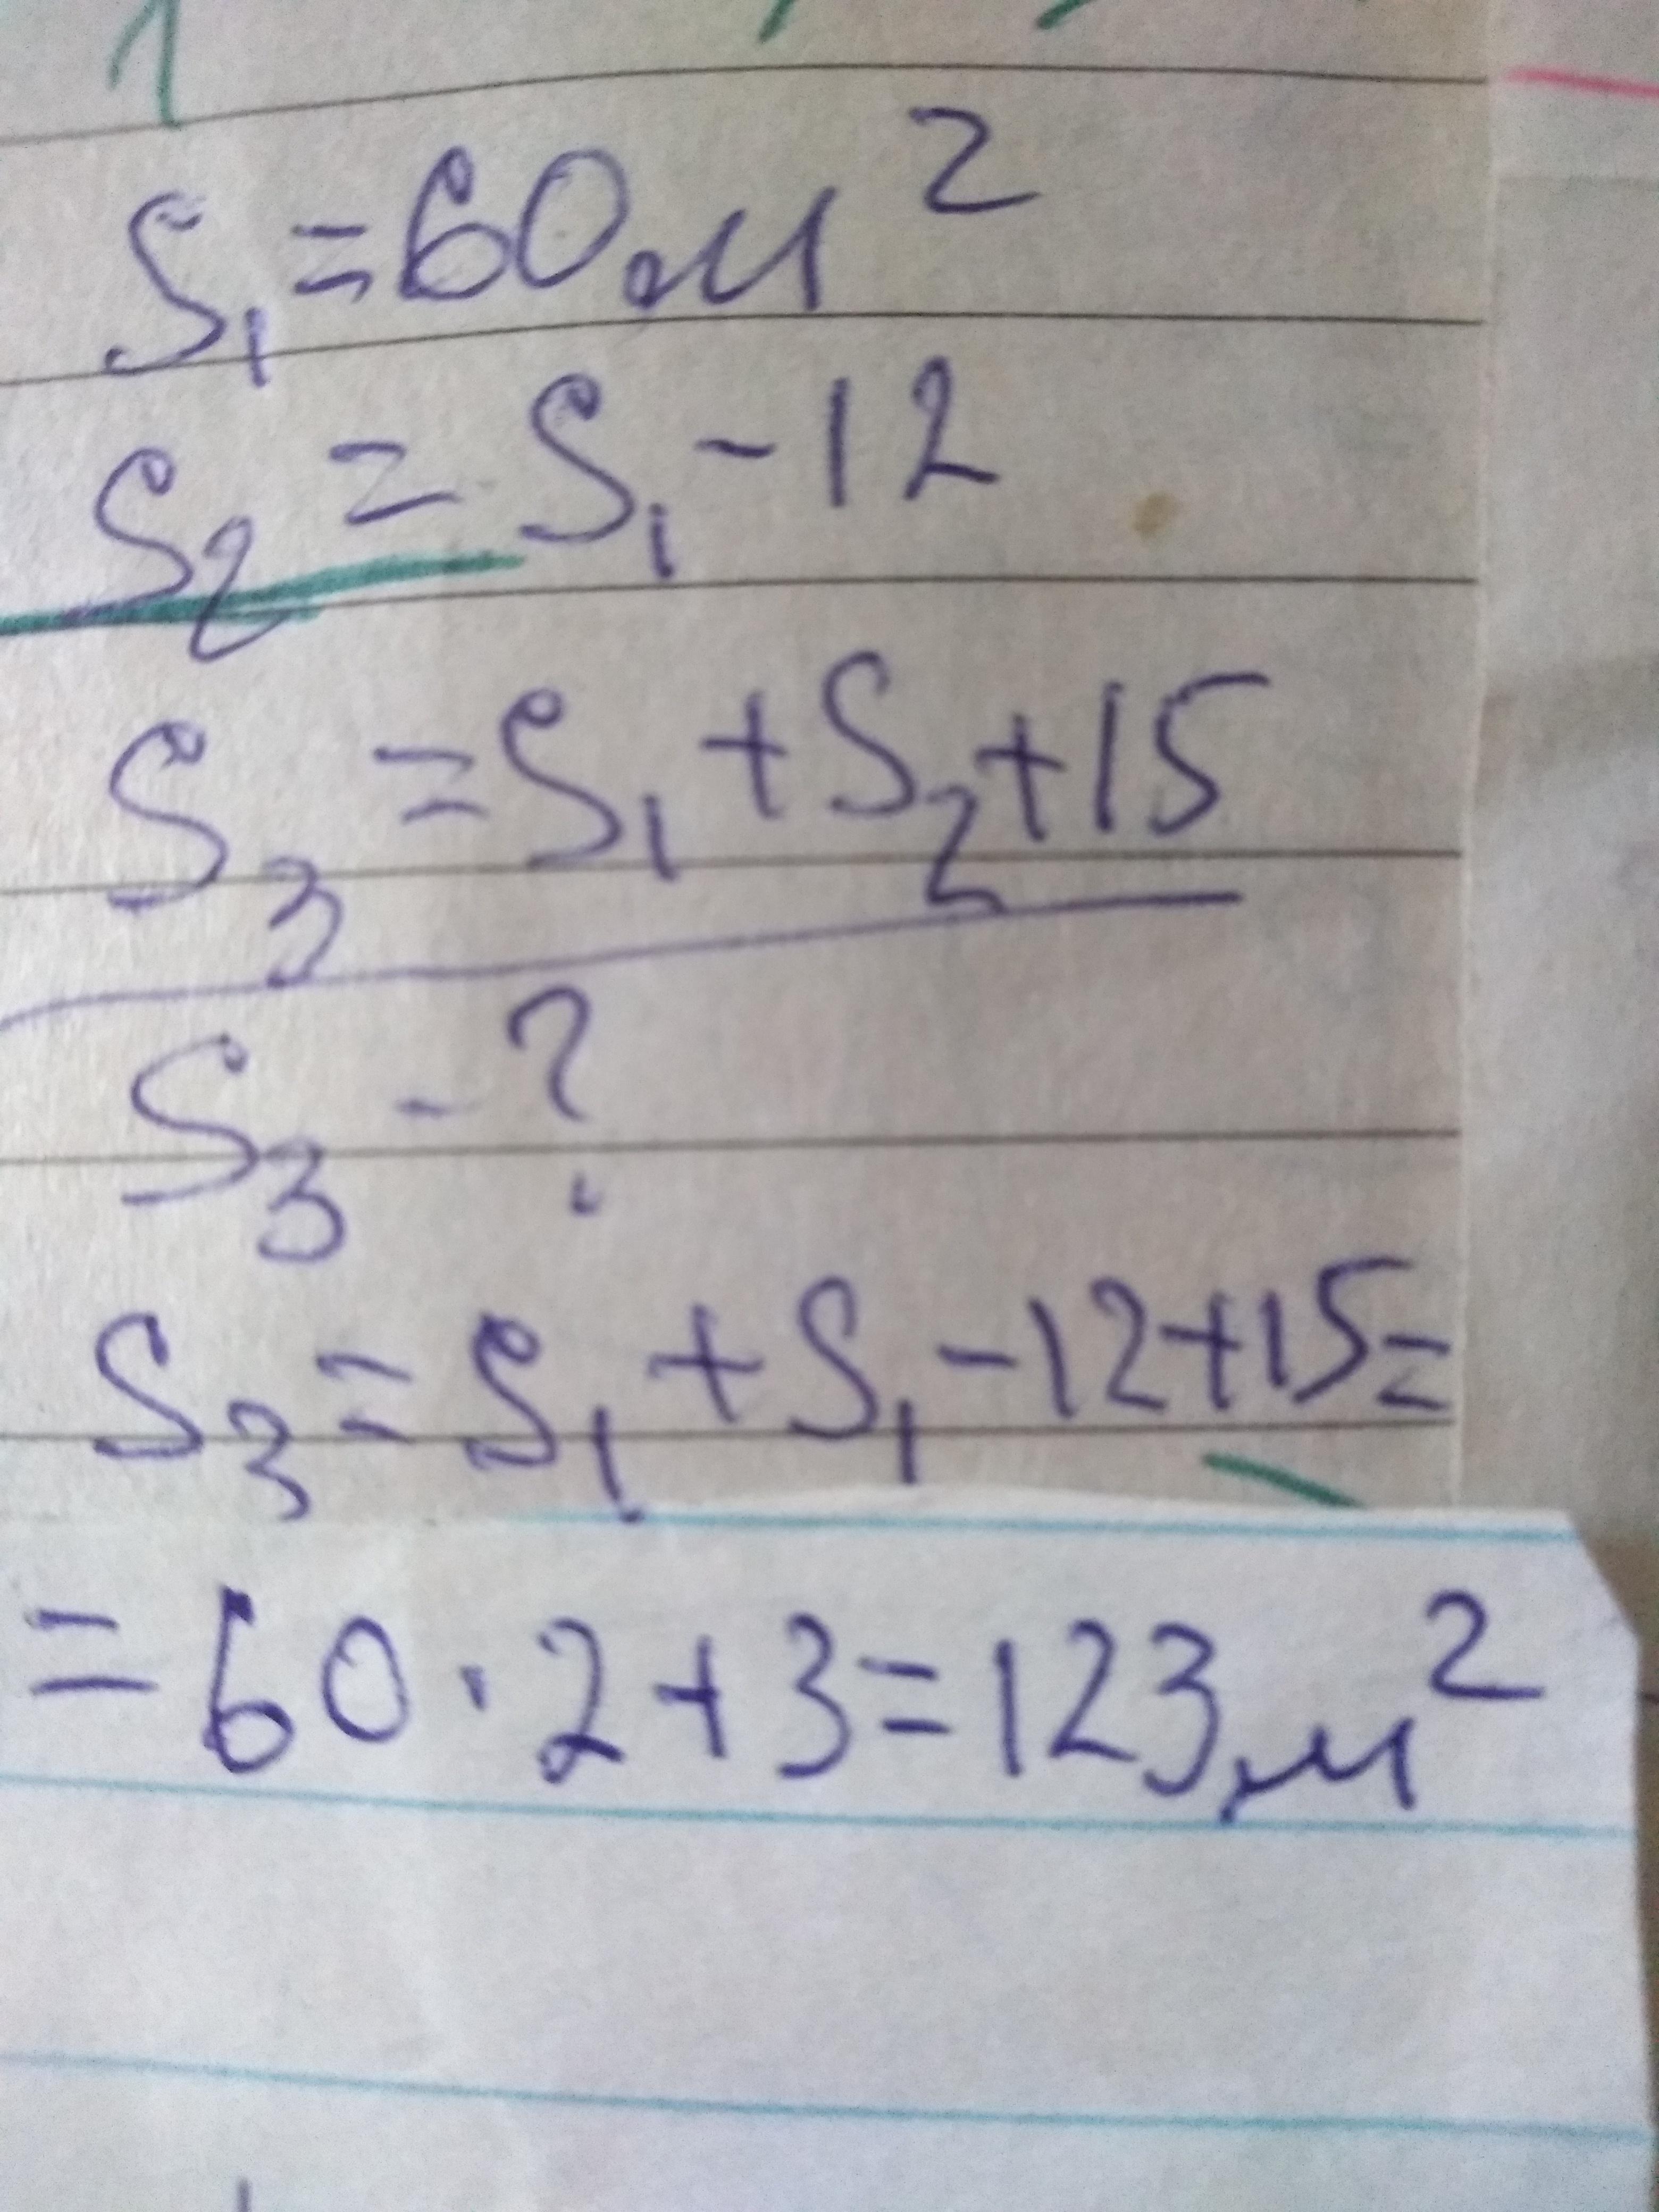 S₁=60м²
S₂=S₁-12
S₃=S₁+S₂+15
S₃-?
S₃=S₁+S₁-12+15=
=60·2+3=123м²